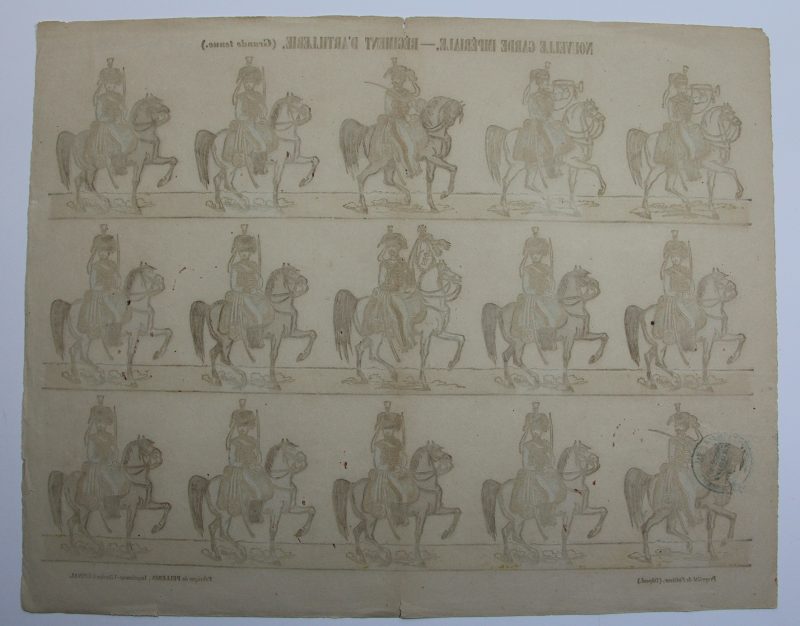 NOUVELLE GARDE IMPÉRIALE. — RÉGIMENT D'ARTILLERIE. (Grande tenue.)
Propriété de l'éditeur. (Déposé.)
Fabrique de PELLERIN, Imprimeur-Libraire, à ÉPINAL.